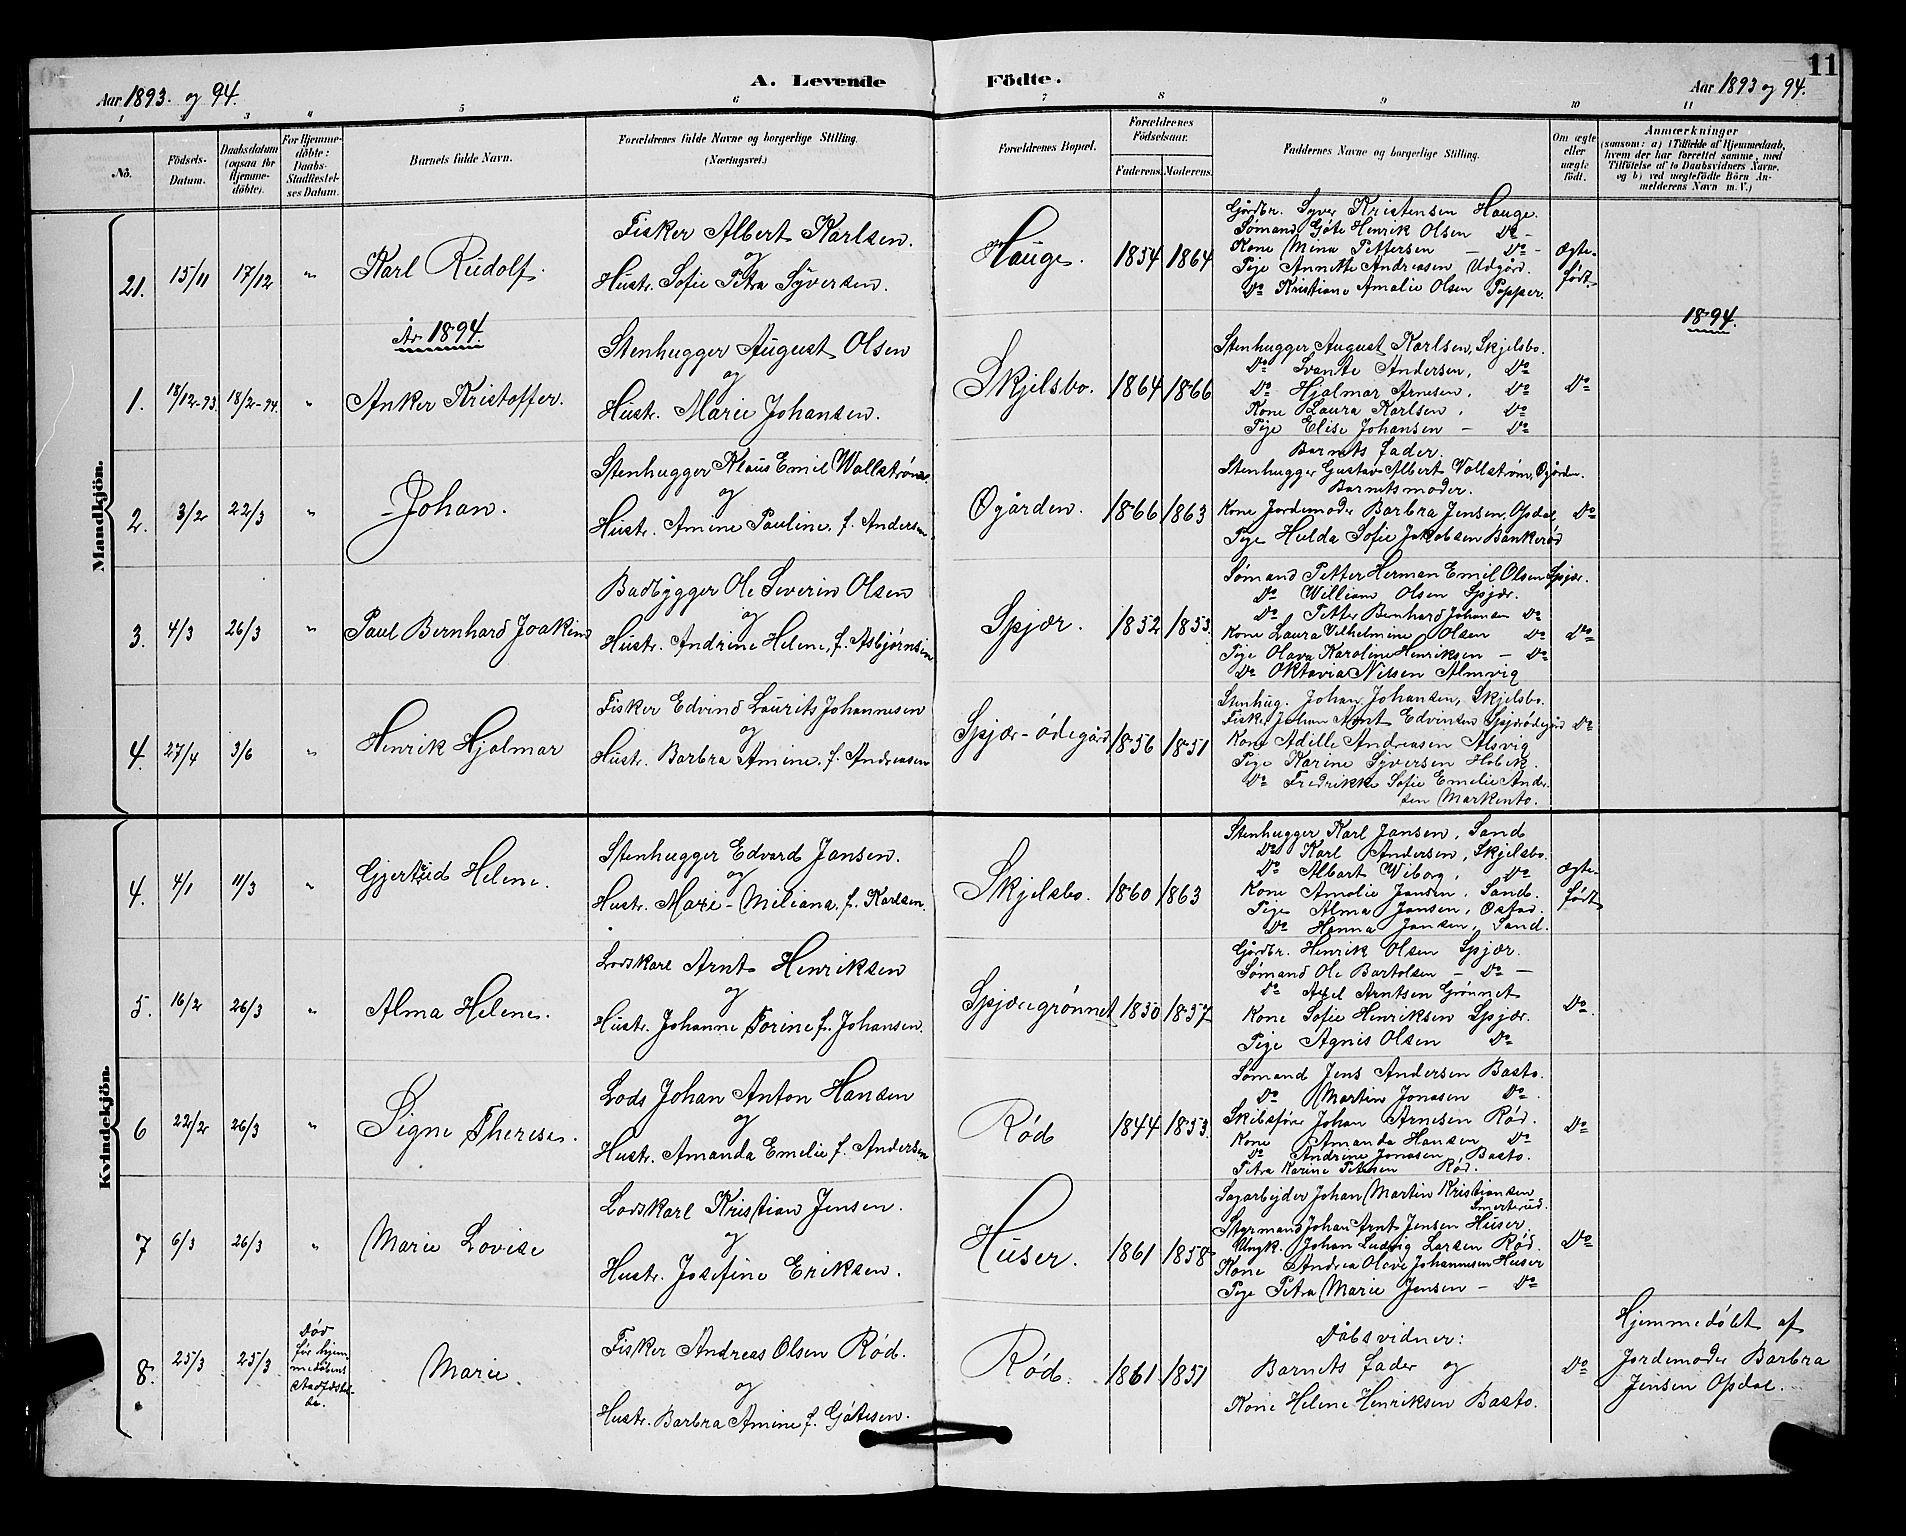 11
Aar 1893. og 94.
A. Levende Födte.
Aar 1893 og 94.
1 2 3 4 5 6 7 8 9 10 11
No.
Födsels-Datum.
Daabsdatum (ogsaa for Hjemme-döbte).
For Hjemme-döbte: Daabs-Stadfæstel-ses Datum.
Barnets fulde Navn.
Forældrenes fulde Navne og borgerlige Stilling. (Næringsvei.)
Forældrenes Bopæl.
Forældrenes Födselsaar.
Faderens. Moderens.
Faddernes Navne og borgerlige Stilling.
Om ægte eller uægte födt.
Anmærkninger
(saasom: a) i Tilfælde af Hjemmedaab, hvem der har forrettet samme, med Tilföielse af to Daabsvidners Navne, og b) ved uegtefödte Börn An-melderens Navn m. V.)
Mandkjön.
21. 15/11 17/12 " Karl Rudolf.
Fisker Albert Karlsen.
og
Hustr. Sofie Petra Syversen.
Hauge. 1854 1864
Gårdbr. Syver Kristensen Hauge.
Sømand Göte Henrik Olsen Do -
Kone Mina Pettersen - Do -
Pige Annette Andreasen, Udgård.
Do Kristiane Amalie Olsen Papper.
Ægte-født.
År 1894.
1894.
1. 18/12-93. 18/2-94. " Anker Kristoffer.
Stenhugger August Olsen
og
Hustr. Marie Johansen.
Skjelsbo. 1864 1866
Stenhugger August Karlsen, Skjelsbo.
Do Svante Andersen, Do
Do Hjalmar Arnesen, Do
Kone Laura Karlsen, Do
Pige Elise Johansen - Do
Do
2. 3/2 22/3 " Johan.
Stenhugger Klaus Emil Wallstrøm.
og
Hustr. Amine Pauline, f. Andersen.
Øgården. 1866 1863
Barnets fader.
Stenhugger Gustav Albert Vollstrøm, Øgården.
Barnets moder.
Kone Jordemoder Barbra Jensen, Opdal,
Pige Hulda Sofie Jakobsen Bankerød
Do
3. 4/3 26/3 " Paul Bernhard Joakim
Badbygger Ole Severin Olsen
og
Hustr. Andrine Helene, f. Asbjørnsen
Spjær. 1852 1853.
Sømand Petter Herman Emil Olsen Spjær.
Do William Olsen Spjær.
Do Petter Bernhard Johansen Do
Kone Laura Vilhelmine Olsen Do
Pige Olava Karoline Henriksen - Do
Do Oktavia Nilsen Almvig
Do
4. 27/4 3/6 " Henrik Hjalmar
Fisker Edvind Laurits Johannesen
og
Hustr. Barbra Amine, f. Andreasen
Spjær-ødegård 1856 1851
Stenhug. Johan Johansen, Skjelsbo.
Fisker Johan Arnt Edvinsen Spjærødegård
Kone Adille Andreasen Alsvig
Pige Karine Syversen Habek.
Do Fredrikke Sofie Emelie Ander-
sen Markento.
Do
Kvindekjön.
4. 4/1 11/3 " Gjertrud Helene.
Stenhugger Edvard Jansen.
og
Hustr. Mari-Miliana, f. Karlsen.
Skjelsbo. 1860 1863
Stenhugger Karl Jansen, Sand
Do Karl Andersen, Skjelsbo.
Do Albart Wiborg, Do
Kone Amalie Jansen, Sand.
Pige Alma Jansen,
Do Hanna Jansen, Sand.
Ægte-født
5. 16/2 26/3 " Alma Helene.
Lodskarl Arnt Henriksen
og
Hustr. Johanne Torine f. Johansen.
Spjæregrønnet 1850 1857
Gårdbr. Henrik Olsen Spjær.
Sømand Ole Bartolsen - Do -
Do Axel Arntsen Grønnet
Kone Sofie Henriksen Spjær.
Pige Agnis Olsen Do
Do
6 22/2 26/3 " Signe Therese.
Lods Johan Anton Hansen
og
Hustr. Amanda Emelie f. Andersen
Rød 1844 1853.
Sømand Jens Andersen Basto.
Do Martin Jonasen Do
Skibsfører Johan Arnesen Rød.
Kone Amanda Hansen Do
Do Andrine Jonasen Basto.
Petra Karine Petersen Rød.
Do
7 6/3 26/3 " Marie Lovise
Lodskarl Kristian Jensen.
og
Hustr. Josefine Eriksen.
Huser. 1861 1858
Sagarbejder Johan Martin Kristiansen
Smertnrud.
Styrmand Johan Arnt Jensen Huser.
Ungk. Johan Ludvig Larsen Rød.
Kone Andrea Olave Johannesen Huser
Pige Petra Marie Jensen - Do
Do
8. 25/3 25/3
Død før hjem-medåbens stadfæstel-se.
Marie.
Fisker Andreas Olsen Rød.
og
Hustr. Barbra Amine f. Götesen.
Rød. 1861 1851
Dåbsvidner:
Barnets fader og
Kone Helene Henriksen Basto.
Do
Hjemmedøbt af
Jordemoder Barbra
Jensen Opdal.